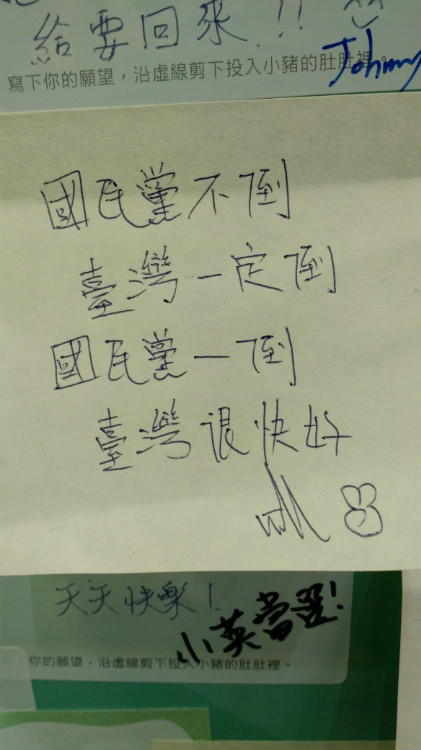 給要回來!!
Johnny
寫下你的願望，沿虛線剪下投入小豬的肚肚裡。
國民黨不倒
臺灣一定倒
國民黨一倒
臺灣很快好
天天快樂！
小英當選!
你的願望，沿虛線剪下投入小豬的肚肚裡。